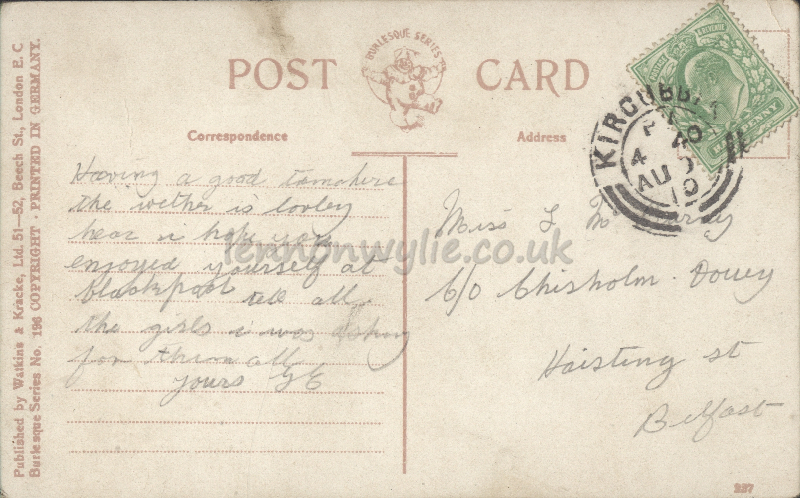 BURLESQUE SERIES
POST CARD
Correspondence
Address
KIRCUBBIN
4
AU 5
10
Having a good tam here
the wether is lovley
hear i hope you
enjoyed yourself at
blackpool tell all
the girls i was asking
for them all
yours GE
Miss L Mc
C/O Chisholm. Dovey
Haisting st
Belfast
Published by Watkins & Kracke, Ltd. 51-52, Beech St., London E. C
Burlesque Series No. 196 COPYRIGHT · PRINTED IN GERMANY.
lennonwylie.co.uk
237